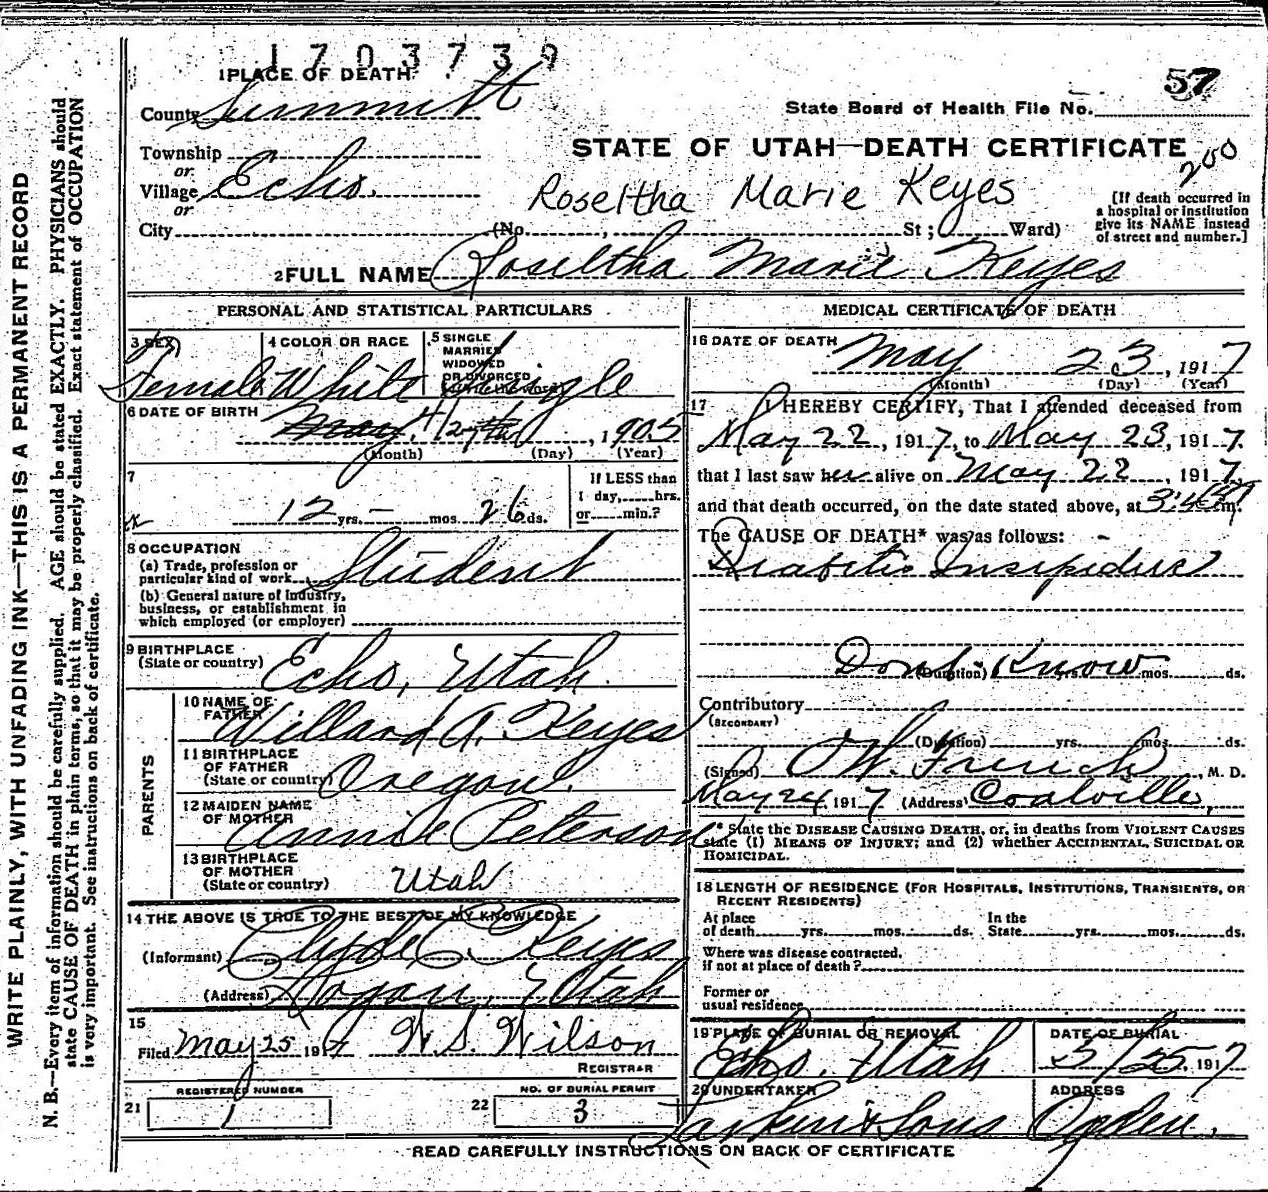 1703739
1 PLACE OF DEATH
57
County Summitt
State Board of Health File No.
Township
or
STATE OF UTAH—DEATH CERTIFICATE
200
Village Echo.
or
Roseltha Marie Keyes
[If death occurred in
a hospital or institution
give its NAME instead
of street and number.]
City (No. , St; Ward)
2 FULL NAME Roseltha Marie Keyes
PERSONAL AND STATISTICAL PARTICULARS
3 SEX
Female
4 COLOR OR RACE
White
5 SINGLE
MARRIED
WIDOWED
OR DIVORCED
(Write the word)
Single
6 DATE OF BIRTH
May 4/27th, 1905
(Month) (Day) (Year)
7
12 yrs. – mos. 26 ds.
If LESS than
1 day, hrs.
or min.?
8 OCCUPATION
(a) Trade, profession or
particular kind of work Student
(b) General nature of industry,
business, or establishment in
which employed (or employer)
9 BIRTHPLACE
(State or country) Echo, Utah.
PARENTS
10 NAME OF
FATHER Willard A. Keyes
11 BIRTHPLACE
OF FATHER
(State or country) Oregon.
12 MAIDEN NAME
OF MOTHER Annie Peterson
13 BIRTHPLACE
OF MOTHER
(State or country) Utah
14 THE ABOVE IS TRUE TO THE BEST OF MY KNOWLEDGE
(Informant) Clyde C. Keyes
(Address) Logan, Utah
15
Filed May 25 1917 W. S. Wilson
REGISTRAR
REGISTERED NUMBER
21 1
NO. OF BURIAL PERMIT
22 3
MEDICAL CERTIFICATE OF DEATH
16 DATE OF DEATH
May 23, 1917
(Month) (Day) (Year)
17 I HEREBY CERTIFY, That I attended deceased from
May 22, 1917, to May 23, 1917.
that I last saw her alive on May 22, 1917,
and that death occurred, on the date stated above, at m.
The CAUSE OF DEATH* was as follows:
Diabetis Insipidus
Dont Know
(Duration) yrs. mos. ds.
Contributory
(SECONDARY)
(Duration) yrs. mos. ds.
(Signed) O.W. French, M. D.
May 24, 1917 (Address) Coalville,
* State the DISEASE CAUSING DEATH, or, in deaths from VIOLENT CAUSES
state (1) MEANS OF INJURY; and (2) whether ACCIDENTAL, SUICIDAL OR
HOMICIDAL.
18 LENGTH OF RESIDENCE (FOR HOSPITALS, INSTITUTIONS, TRANSIENTS, OR
RECENT RESIDENTS)
At place
of death yrs. mos. ds.
In the
State yrs. mos. ds.
Where was disease contracted,
if not at place of death?
Former or
usual residence
19 PLACE OF BURIAL OR REMOVAL
Echo, Utah
DATE OF BURIAL
5/25 1917
20 UNDERTAKER
Larkin & Sons
ADDRESS
Ogden.
READ CAREFULLY INSTRUCTIONS ON BACK OF CERTIFICATE
WRITE PLAINLY, WITH UNFADING INK—THIS IS A PERMANENT RECORD
N. B.—Every item of information should be carefully supplied. AGE should be stated EXACTLY. PHYSICIANS should
state CAUSE OF DEATH in plain terms, so that it may be properly classified. Exact statement of OCCUPATION
is very important. See instructions on back of certificate.